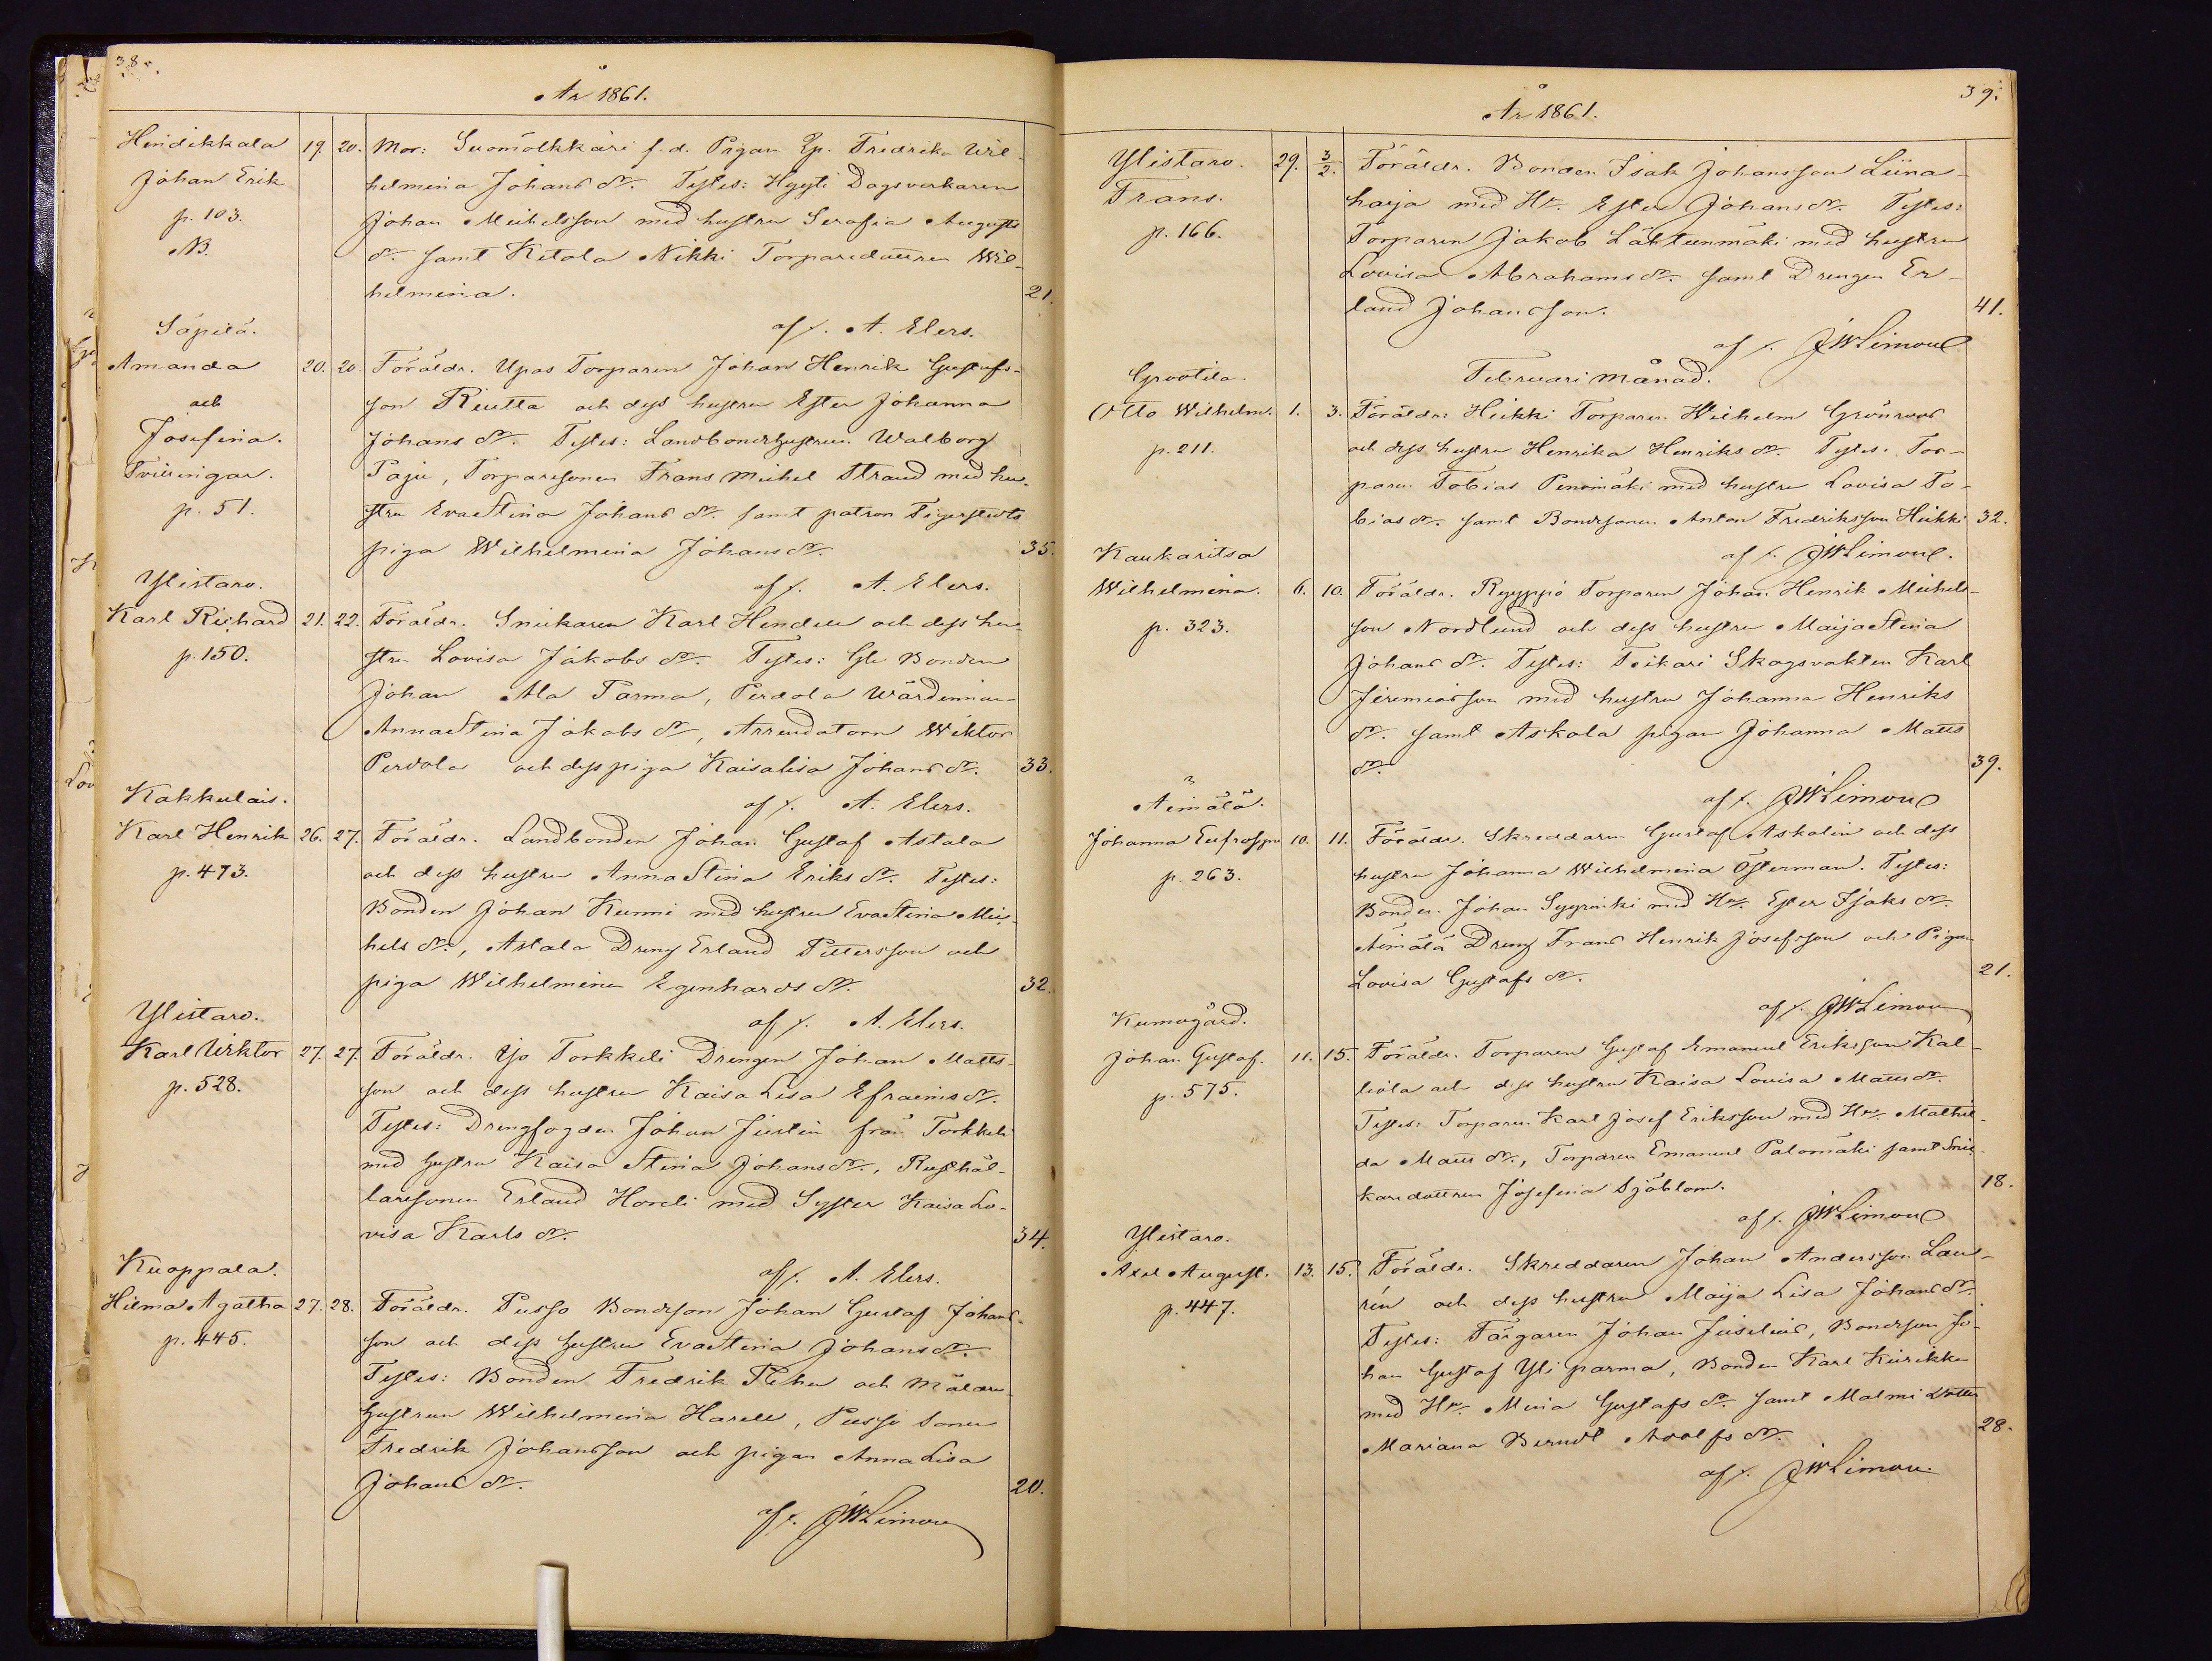 38.
År 1861.
Hindikkala 19. 20. Mor: Suomölkkäri f.d. Pigan Ep. Fredrika Wil-
Johan Erik helmina Johans dr. Testes: Hyyti Dagsverkaren
p. 103. Johan Michelsson med hustru Serafia Augusts
NB. dr. samt Ketola Nikki Torparedottren Wil-
helmina. 21.
Säpilä. af s. A. Elers.
Amanda 20. 20. Föräldr. Upas Torparen Johan Henrik Gustafs-
och son Riutta och dess hustru Ester Johanna
Josefina. Johans dr. Testes: Landbondehustrun Walborg
Tvillingar. Paju, Torparesonen Frans Michel Strand med hu-
p. 51. stru Eva Stina Johans dr. samt patron Tigerstedts
piga Wilhelmina Johans dr. 35.
Ylistaro. af s. A. Elers.
Karl Richard 21. 22. Föräldr. Snickaren Karl Hindell och dess hu-
p. 150. stru Lovisa Jakobs dr. Testes: Gle Bonden
Johan Ala Parma, Perdola Wärdinnan
Anna Stina Jakobs dr, Arrendatorn Wiktor
Perdola och dess piga Kaisa Lisa Johans dr. 33.
Kakkulais. af s. A. Elers.
Karl Henrik 26. 27. Föräldr. Landbonden Johan Gustaf Astala
p. 473. och dess hustru Anna Stina Eriks dr. Testes:
Bonden Johan Kunni med hustru Eva Stina Mic-
hels dr., Astala Dreng Erland Pettersson och
piga Wilhelmina Egenhards dr. 32.
Ylistaro. af s. A. Elers.
Karl Wiktor 27. 27. Föräldr. Yjo Torkkeli Drengen Johan Matts-
p. 528. son och dess hustru Kaisa Lisa Efraims dr.
Testes: Drengfogden Johan Justin från Torkkeli
med hustru Kaisa Stina Johans dr., Rusthål-
laresonen Erland Horeli med Syster Kaisa Lo-
visa Karls dr. 34.
Kuoppala. af s. A. Elers.
Hilma Agatha 27. 28. Föräldr. Pusso Bondeson Johan Gustaf Johans-
p. 445. son och dess hustru Eva Stina Johans dr.
Testes: Bonden Fredrik Pehu och Målare-
hustrun Wilhelmina Harell, Pusso Sonen
Fredrik Johansson och pigan Anna Lisa
Johans dr. 20.
af s. JWLimon
39.
År 1861.
Ylistaro. 29. 3/2. Föräldr. Bonden Isak Johansson Liina-
Frans. harja med Hr. Ester Johans dr. Testes:
p. 166. Torparen Jakob Lähteenmäki med hustru
Lovisa Abrahams dr. samt Drengen Er-
land Johansson. 41.
af s. JWLimon
Grootila. Februari månad.
Otto Wilhelm. 1. 3. Föräldr: Heikki Torparen Wilhelm Grönroos
p. 211. och dess hustru Henrika Henriks dr. Testes: Tor-
paren Tobias Penimäki med hustru Lovisa To-
bias dr. samt Bondesonen Anton Fredriksson Heikki 32.
Kaukaritsa af s. JWLimon.
Wilhelmina. 6. 10. Föräldr. Ryyppö Torparen Johan Henrik Michels-
p. 323. son Nordlund och dess hustru Maija Stina
Johans dr. Testes: Teikari Skogsvakten Karl
Jeremiasson med hustru Johanna Henriks
dr. samt Askola pigan Johanna Matts
dr. 39.
Äimälä. af s. JWLimon
Johanna Eufrosyne 10. 11. Föräldr. Skreddaren Gustaf Askolin och dess
p. 263. hustru Johanna Wilhelmina Österman. Testes:
Bonden Johan Syyrinki med Hr. Ester Isaks dr.
Äimälä Dreng Frans Henrik Josefsson och Pigan
Lovisa Gustafs dr. 21.
Kumogård. af s. JWLimon
Johan Gustaf. 11. 15. Föräldr. Torparen Gustaf Emanuel Eriksson Kal-
p. 575. liola och dess hustru Kaisa Lovisa Matts dr.
Testes: Torparen Karl Josef Eriksson med Hr. Mathil-
da Matts dr., Torparen Emanuel Palomäki samt Snic-
karedottren Josefina Sjöblom. 18.
Ylistaro. af s. JWLimon
Axel August. 13. 15. Föräldr. Skreddaren Johan Andersson Lau-
p. 447. rén och dess hustru Maija Lisa Johans dr.
Testes: Färgaren Johan Juselius, Bondeson Jo-
han Gustaf Yli parma, Bonden Karl Kiirikka
med Hr. Mina Gustafs dr. samt Malmi dotter
Mariana Berndt Adolfs dr. 28.
af s. JWLimon.